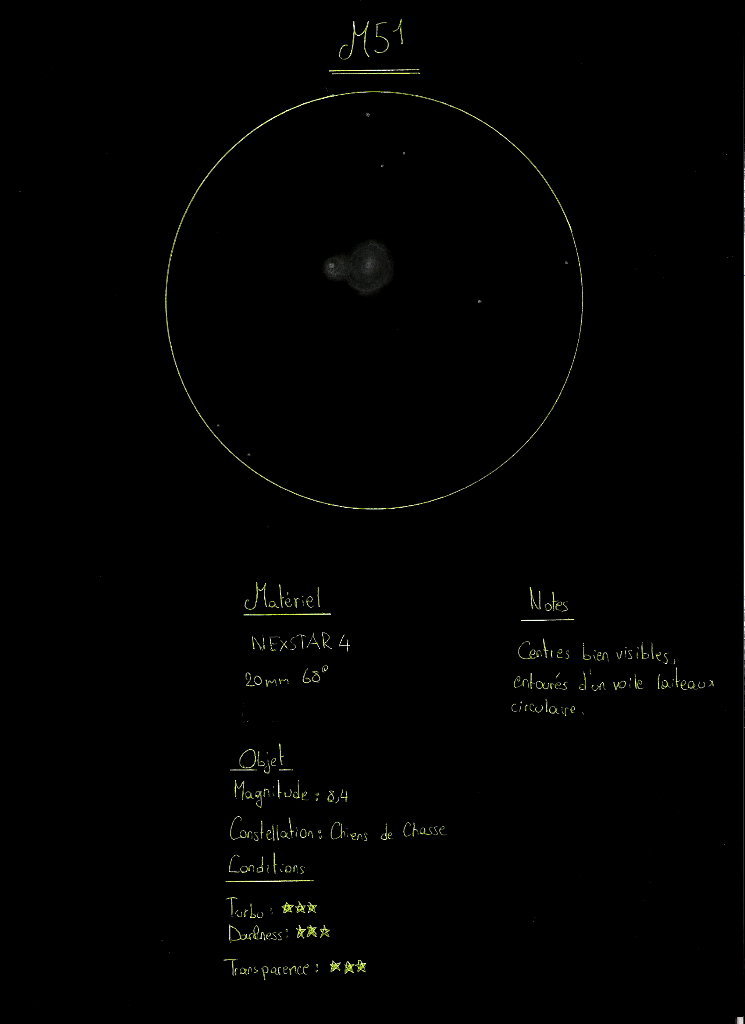 M51
Matériel
NEXSTAR 4
20mm 68°
Notes
Centres bien visibles,
entourés d'un voile laiteux
circulaire.
Objet
Magnitude : 8,4
Constellation : Chiens de Chasse
Conditions
Turbu : ★★★
Darkness : ★★★
Transparence : ★★★